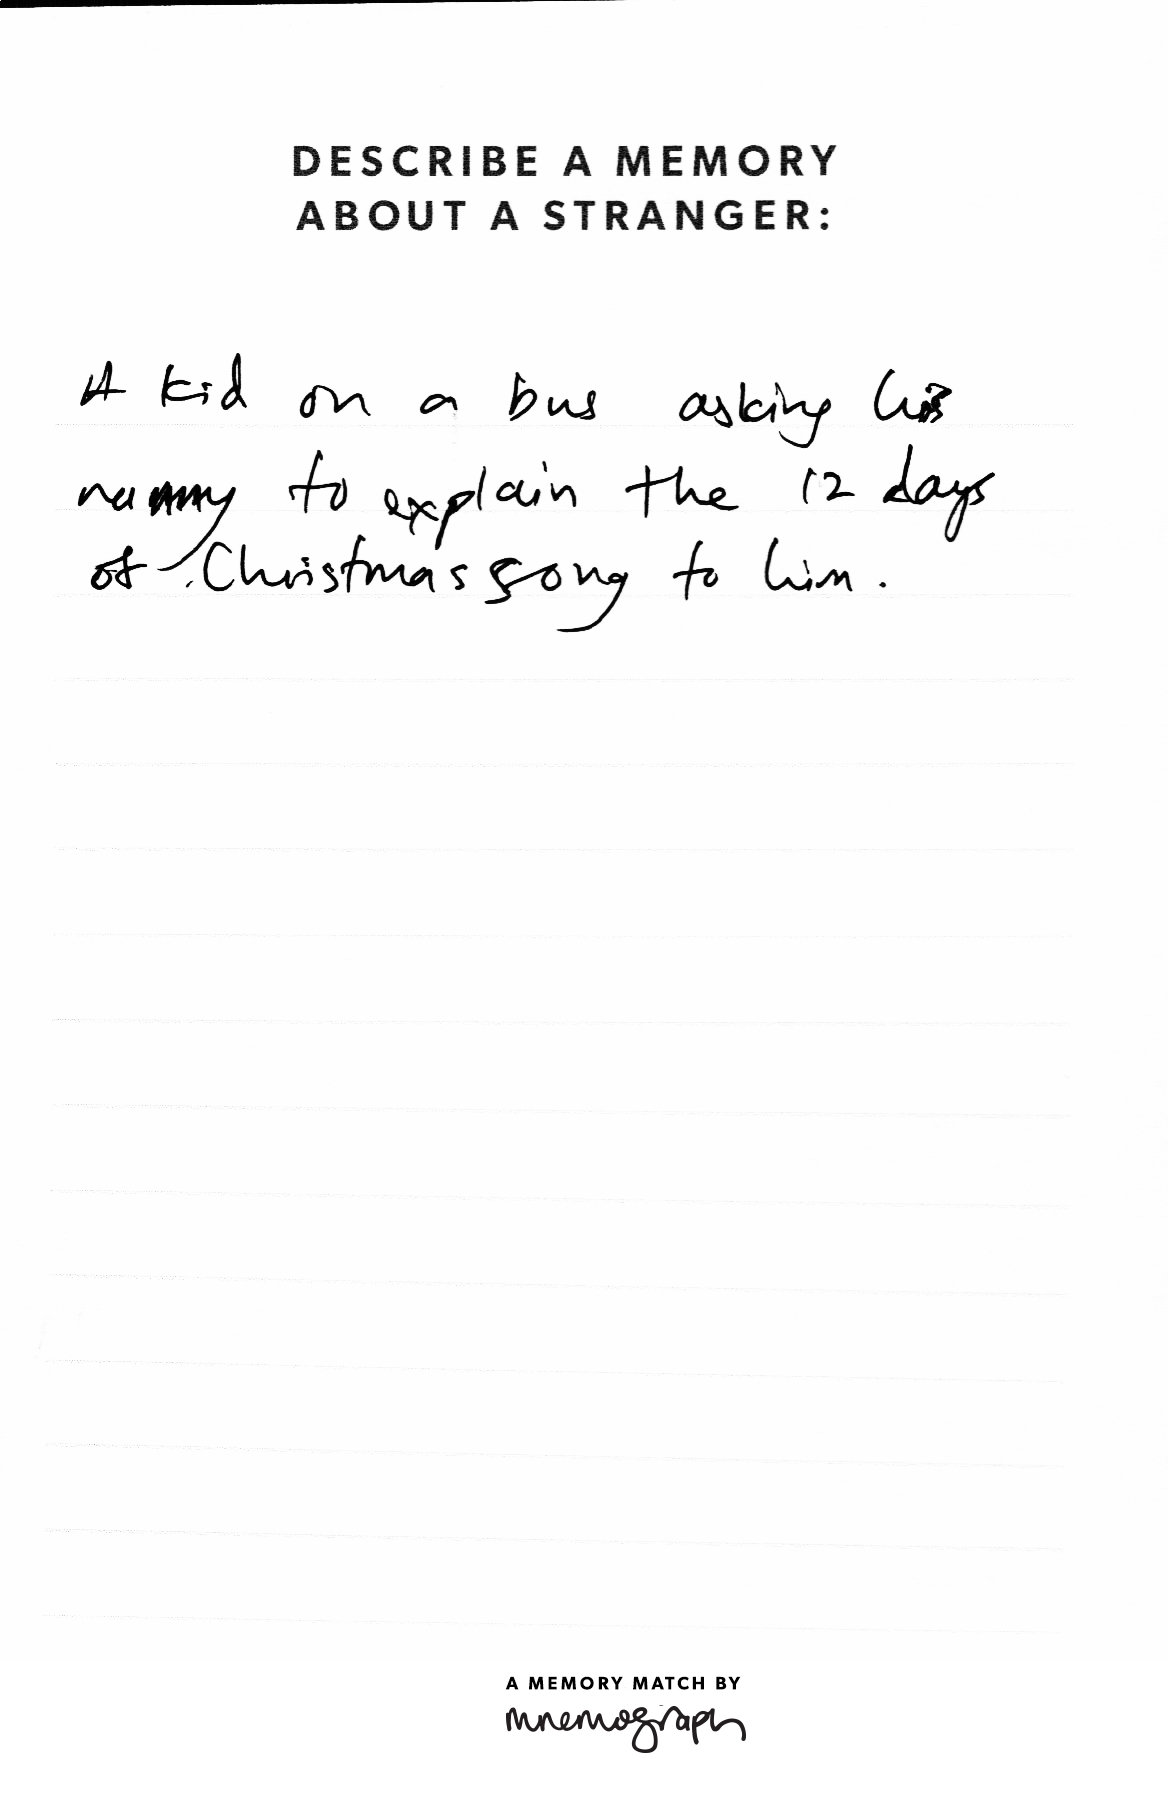 DESCRIBE A MEMORY
ABOUT A STRANGER:
A kid on a bus asking his
nanny to explain the 12 days
of Christmas song to him.
A MEMORY MATCH BY
mnemograph